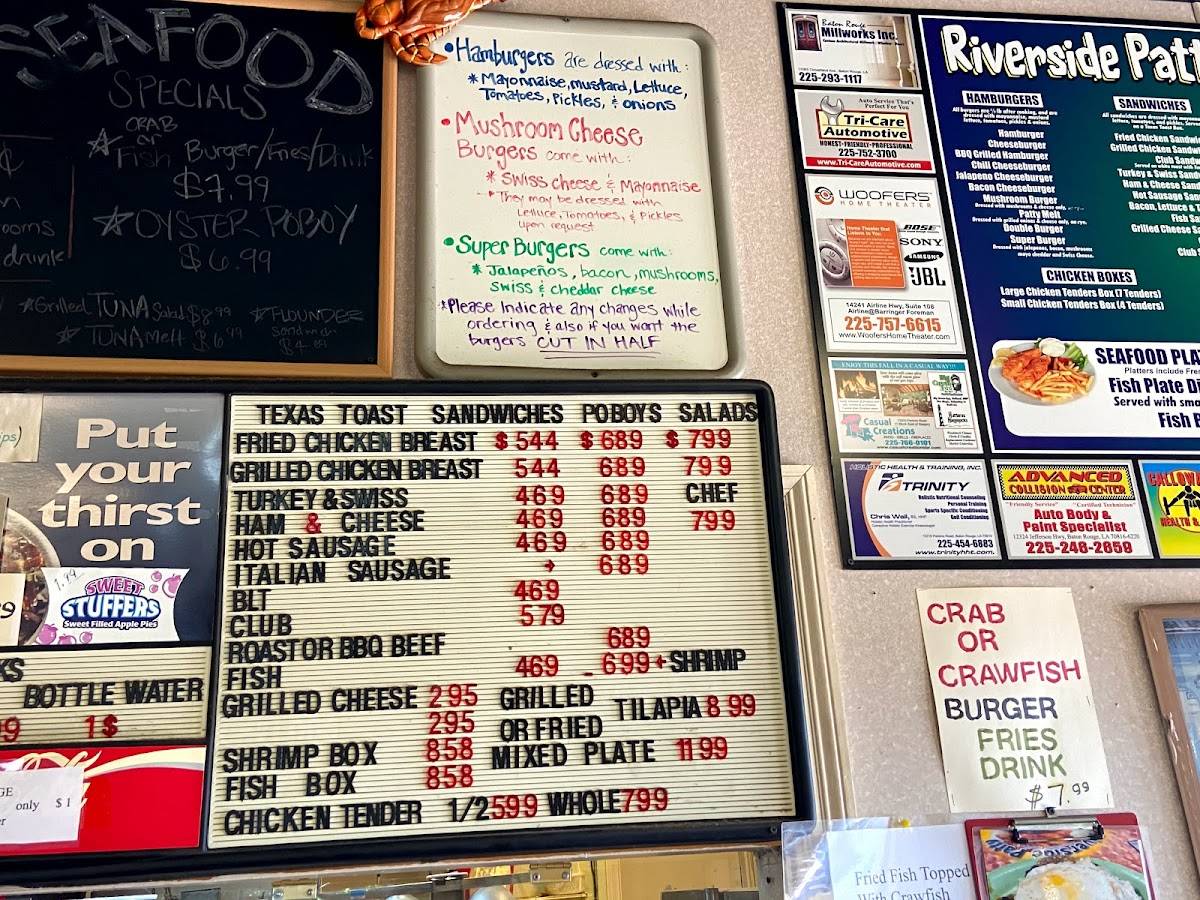 SEAFOOD
SPECIALS
CRAB
or
Fish Burger/Fries/Drink
$7.99
OYSTER POBOY
$6.99
drink
Grilled TUNA Salad
TUNA Melt
FLOUNDER
Sandwich
•Hamburgers are dressed with:
*Mayonnaise, mustard, Lettuce,
Tomatoes, Pickles, & onions
•Mushroom Cheese
Burgers come with:
*Swiss cheese & Mayonnaise
*They may be dressed with
Lettuce, Tomatoes, & Pickles
upon request
•Super Burgers come with:
*Jalapeños, bacon, mushrooms,
swiss & cheddar cheese
*Please Indicate any changes while
ordering & also if you want the
burgers CUT IN HALF
Put
your
thirst
on
1.99
SWEET
STUFFERS
Sweet Filled Apple Pies
BOTTLE WATER
1$
only $1
TEXAS TOAST SANDWICHES POBOYS SALADS
FRIED CHICKEN BREAST $544 $689 $799
GRILLED CHICKEN BREAST 544 689 799
TURKEY & SWISS 469 689 CHEF
HAM & CHEESE 469 689 799
HOT SAUSAGE 469 689
ITALIAN SAUSAGE 689
BLT 469
CLUB 579
ROAST OR BBQ BEEF 689
FISH 469 699+SHRIMP
GRILLED CHEESE 295 GRILLED
295 OR FRIED TILAPIA 8 99
SHRIMP BOX 858 MIXED PLATE 11 99
FISH BOX 858
CHICKEN TENDER 1/2 599 WHOLE 799
Baton Rouge
Millworks Inc.
225-293-1117
Auto Service That's
Perfect For You
Tri-Care
Automotive
HONEST•FRIENDLY•PROFESSIONAL
225-752-3700
www.Tri-CareAutomotive.com
WOOFERS'
HOME THEATER
BOSE
SONY
SAMSUNG
JBL
14241 Airline Hwy, Suite 108
Airline@Barringer Foreman
225-757-6615
www.WoofersHomeTheater.com
ENJOY THIS FALL IN A CASUAL WAY!!!
Casual
Creations
HOLISTIC HEALTH & TRAINING, INC.
TRINITY
Holistic Nutritional Counseling
Personal Training
Sports Specific Conditioning
Golf Conditioning
Chris Wall,
225-454-6883
www.trinityhht.com
ADVANCED
COLLISION CENTER
"Friendly Service" "Certified Technician"
Auto Body &
Paint Specialist
12324 Jefferson Hwy, Baton Rouge, LA 70816-6220
225-246-2659
HEALTH &
Riverside Patt
HAMBURGERS
Hamburger
Cheeseburger
BBQ Grilled Hamburger
Chili Cheeseburger
Jalapeno Cheeseburger
Bacon Cheeseburger
Mushroom Burger
Patty Melt
Double Burger
Super Burger
Dressed with jalapenos, bacon, mushrooms
mayo cheddar and Swiss Cheese.
SANDWICHES
Fried Chicken Sandw
Grilled Chicken Sandw
Club Sand
Turkey & Swiss Sand
Ham & Cheese Sand
Hot Sausage San
Bacon, Lettuce & T
Fish Sa
Grilled Cheese Sa
Club
CHICKEN BOXES
Large Chicken Tenders Box (7 Tenders)
Small Chicken Tenders Box (4 Tenders)
SEAFOOD PLA
Platters Include Fre
Fish Plate D
Served with smo
Fish
CRAB
OR
CRAWFISH
BURGER
FRIES
DRINK
$7.99
Fried Fish Topped
With Crawfish